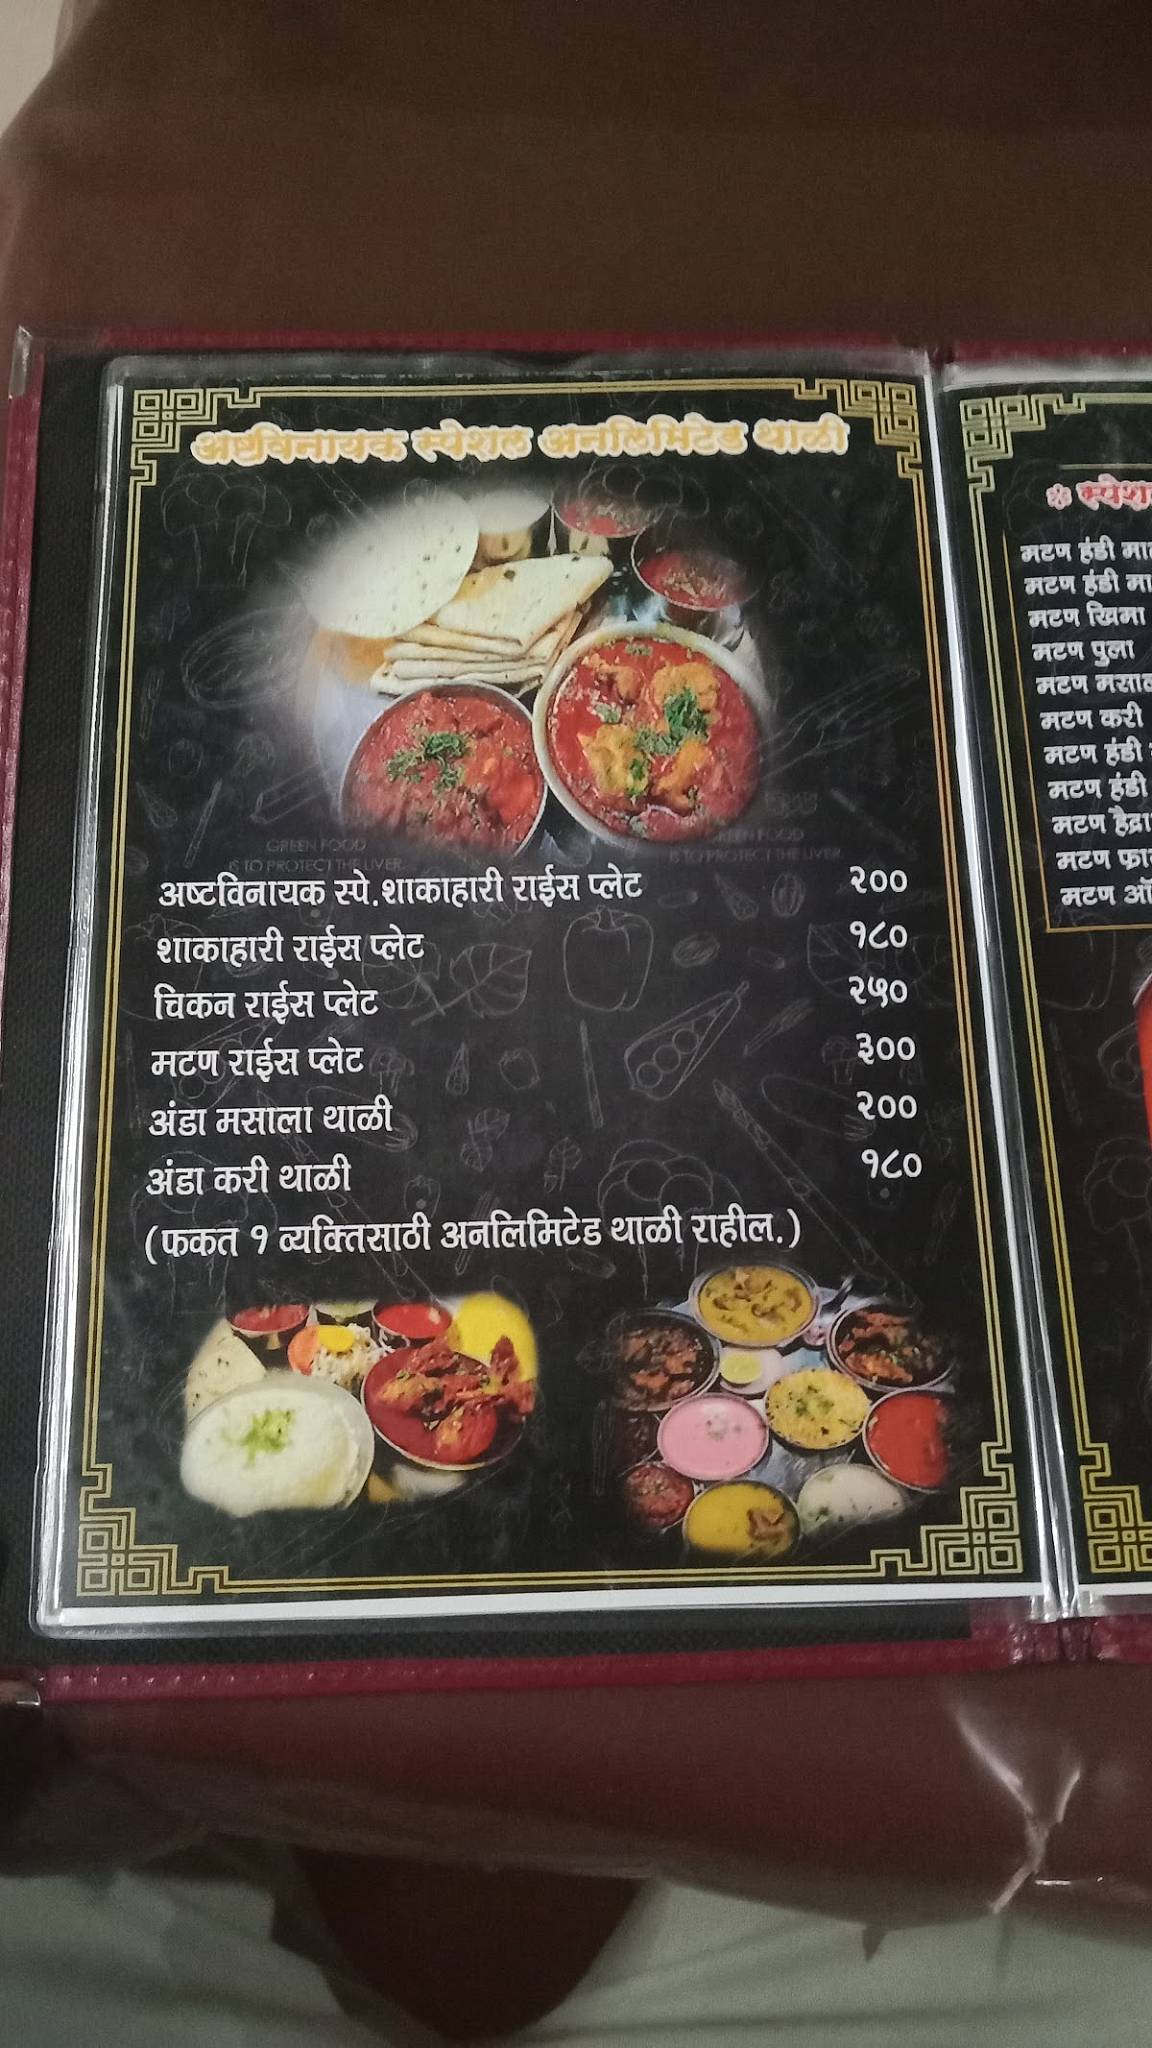 अष्टविनायक स्पेशल अनलिमिटेड थाळी
GREEN FOOD
IS TO PROTECT THE LIVER
GREEN FOOD
IS TO PROTECT THE LIVER
अष्टविनायक स्पे.शाकाहारी राईस प्लेट २००
शाकाहारी राईस प्लेट १८०
चिकन राईस प्लेट २५०
मटण राईस प्लेट ३००
अंडा मसाला थाळी २००
अंडा करी थाळी १८०
(फकत १ व्यक्तिसाठी अनलिमिटेड थाळी राहील.)
मटण हंडी
मटण हंडी
मटण खिमा
मटण पुला
मटण
मटण करी
मटण हंडी
मटण हंडी
मटण
मटण
मटण